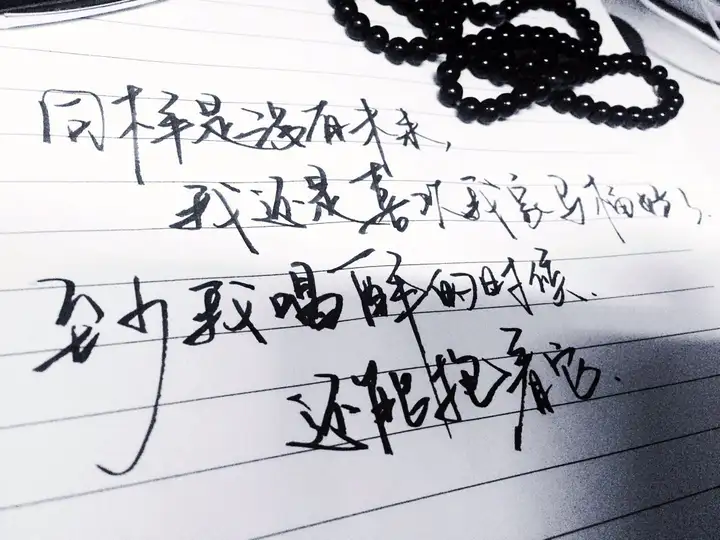 同样是没有未来,
我还是喜欢我家马桶好了.
至少我喝醉的时候.
还能抱着它.